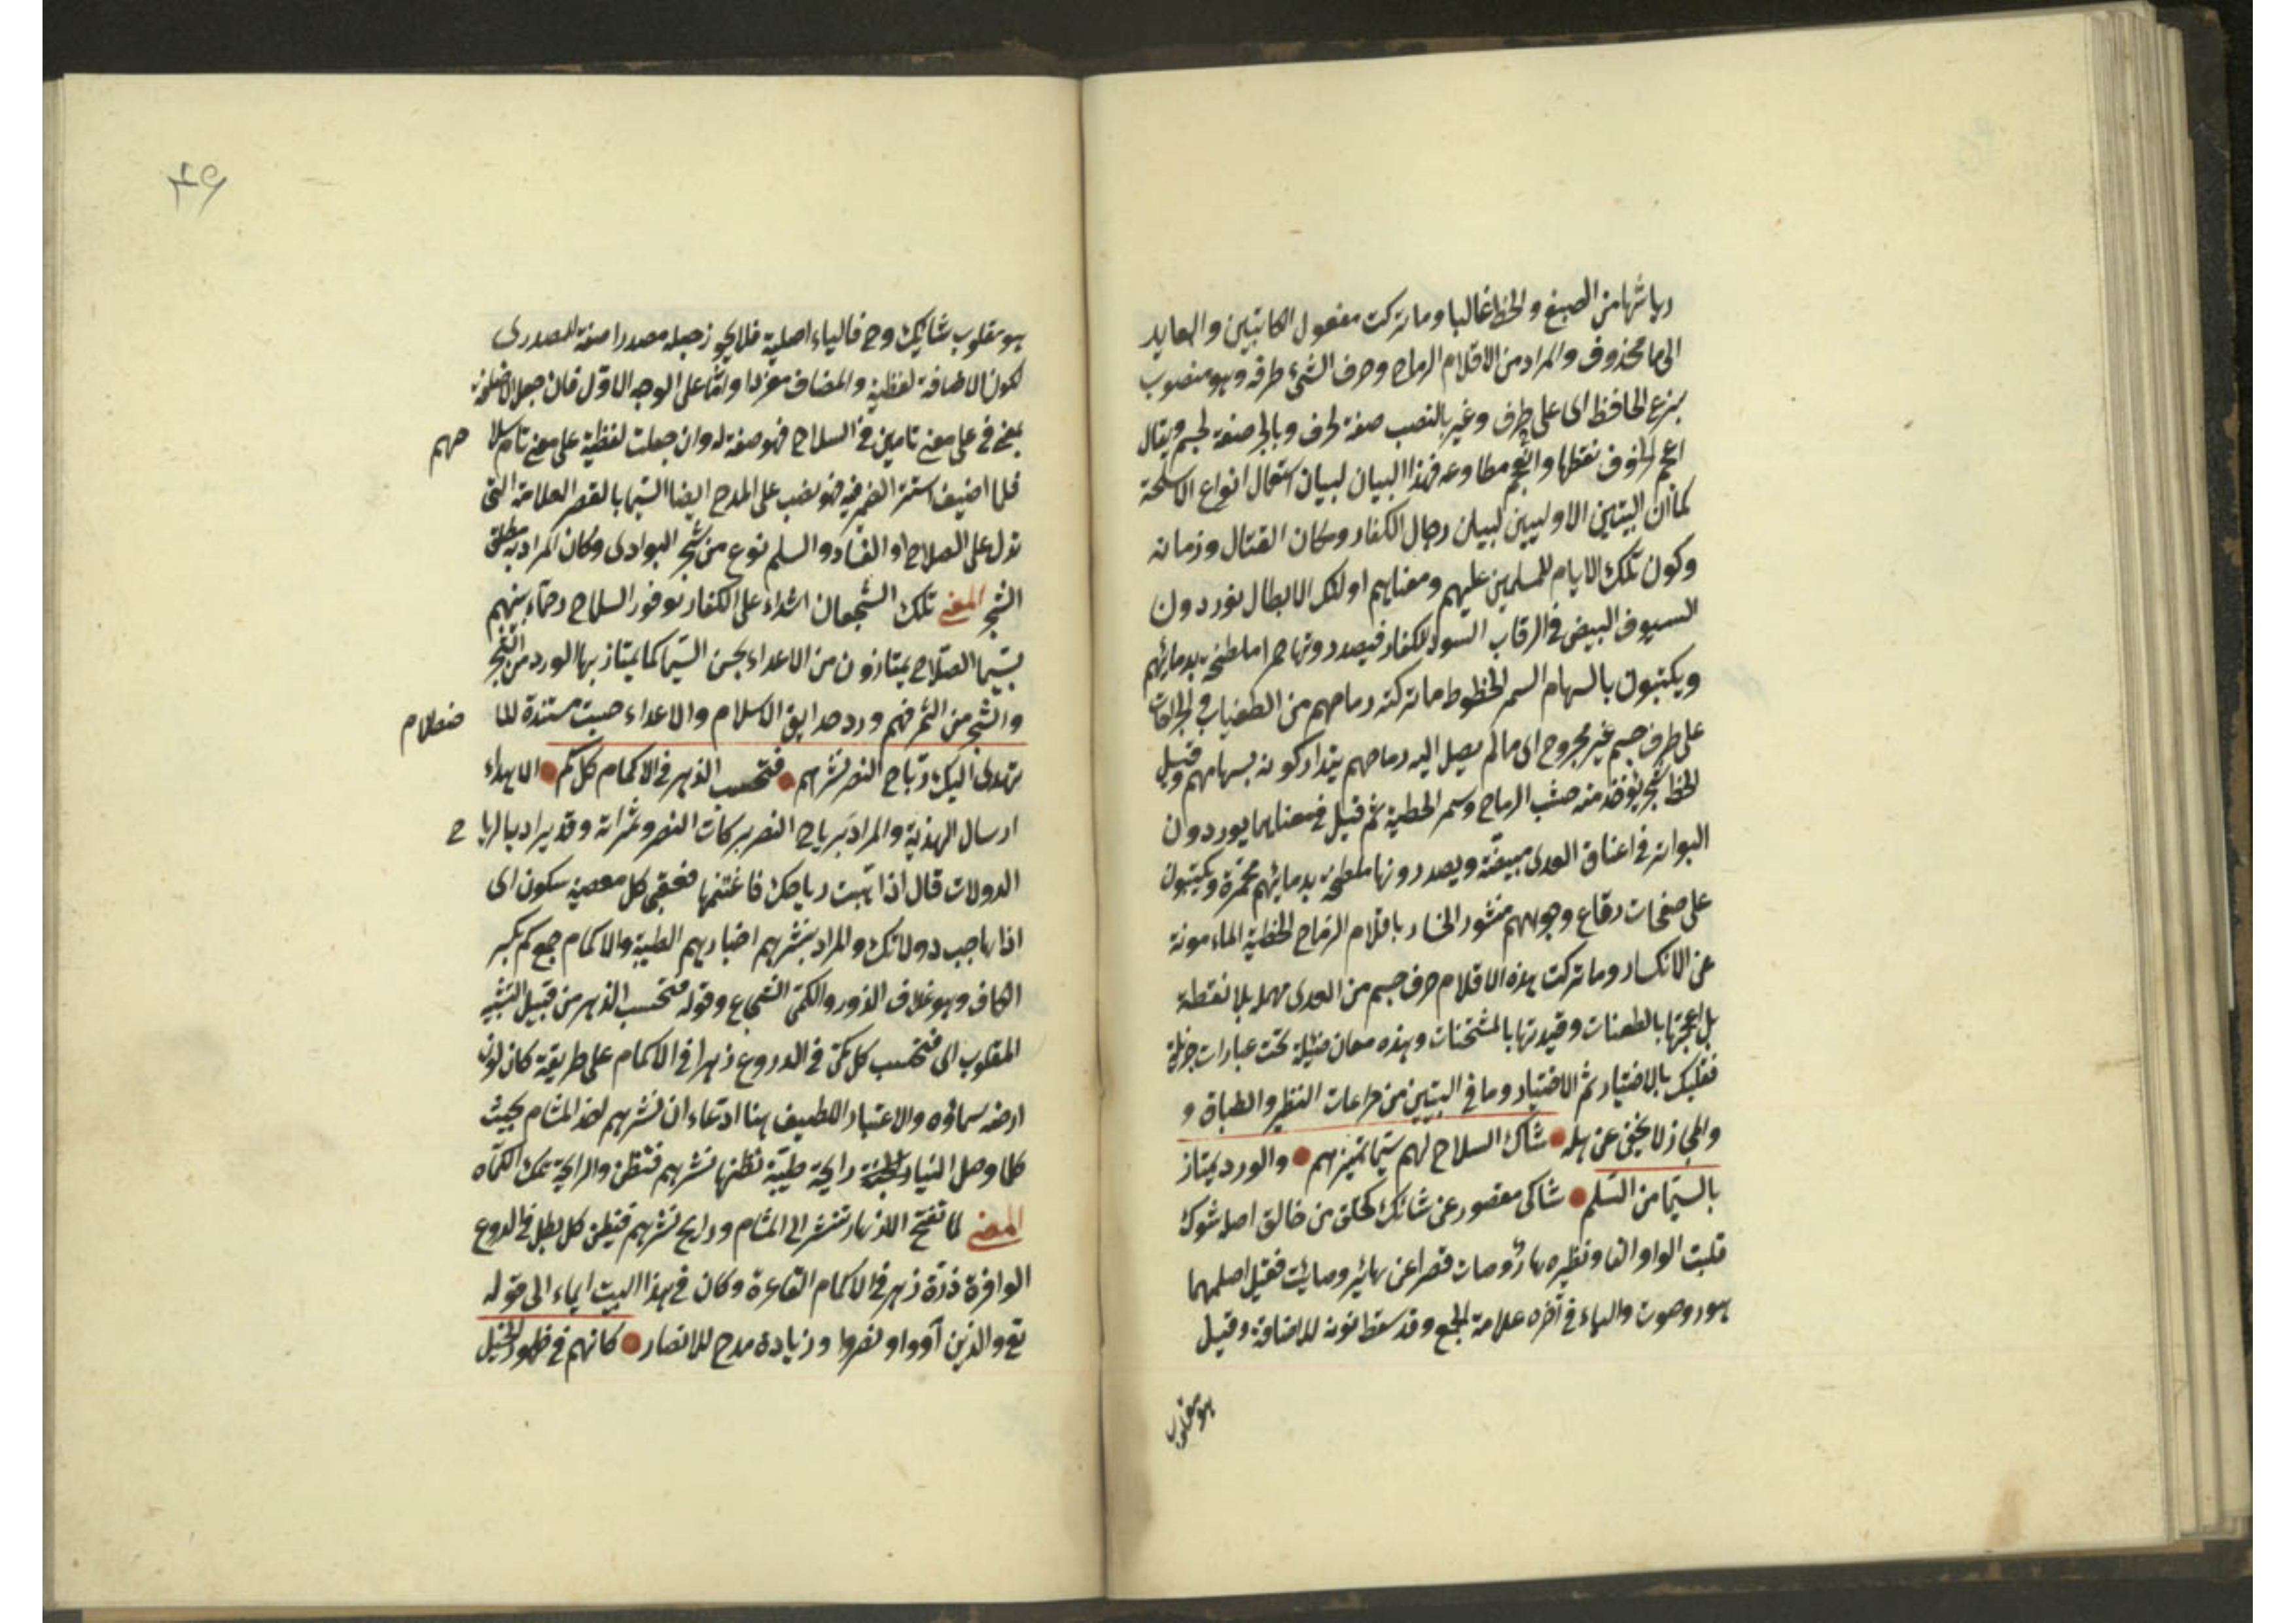 رباشها من الصبغ والخط غالبا وما تركت مفعول الكاتبين والعايد
الى ما محذوف والمراد من الاقلام الرماح وحرف الشئ طرفه وهو منصوب
بنزع الخافظ اى على طرف وغير بالنصب صفة لحرف وبالجر صفة لجسم ويقال
اعجم الحروف نقطها وانعجم مطاوعه فهذا البيان لبيان استعمال انواع الاسلحة
كما ان البيتين الاوليين لبيان رجال الكفار ومكان القتال وزمانه
وكون تلك الايام للمسلمين عليهم ومعناهم اولئك الابطال يوردون
السيوف البيض فى الرقاب السود للكفار فيصدرونها حمرا ملطخة بدمائهم
ويكتبون بالسهام السمر الخطوط ما تركته رماحهم من الطغيان والجراحات
على طرف جسم غير مجروح اى مالم يصل اليه رماحهم يتداركونه بسهامهم وقيل
الخط شجر يؤخذ منه خشب الرماح وسمر الخطية ثم قيل فمعناهما يوردون
البواتر فى اعناق العدى مبيضة ويصدرونها ملطخة بدمائهم محمرة ويكتبون
على صفحات رقاع وجوههم منشور الخسار باقلام الرماح الخطية المأمونة
عن الانكسار وما تركت هذه الاقلام حرف جسم من العدى مهملا بلا نقطة
بل اعجمتها بالطعنات وقيدتها بالمثخنات وهذه معان جزيلة تحت عبارات جزيلة
فعليك بالاختيار ثم الاختيار وما فى البيتين من مراعات النظير والطباق و
والمجاز لا يخفى عن اهله شاك السلاح لهم سيما تميزهم والورد يمتاز
بالسيما من السلم شاكى مقصور عن شائك كخلق من خالق اصله شوك
قلبت الواو الفا ونظيره هار وصات قصرا عن هائر وصايت فقيل اصلهما
هور وصوت والياء فى آخره علامة الجمع وقد سقط نونه للاضافة وقيل
هو مقلوب
٤٩
هو مقلوب شايك وح فالياء اصلية فلا يجوز جعله مصدرا صفة للمصدرى
لكون الاضافة لفظية والمضاف مفردا واما على الوجه الاول فان جعل الاضافة
بمعنى فى على معنى تامين فى السلاح فهو صفة له وان جعلت لفظية على معنى تام سلا
حهم
فلما اضيف استتر الضمير فيه فهو نصب على المدح ايضا السيما بالقصر العلامة التى
تدل على الصلاح او الفساد والسلم نوع من شجر البوادى وكان المراد به مطلق
الشجر المعنى تلك الشجعان اشداء على الكفار بوفور السلاح رحماء بينهم
بسيما الصلاح يمتازون من الاعداء بحسن السيما كما يمتاز بها الورد من الشجر
والشجر من الثمر فهم ورد حدايق الاسلام والاعداء حبيت مستندة للا
ضعلام
تهدى اليك رياح النصر نشرهم فتحسب الزهر فى الاكمام كل كم الاهداء
ارسال الهدية والمراد برياح النصر بركات النصر وثمراته وقد يراد بالريا
ح
الدولات قال اذا هبت رياحك فاغتنمها فعقبى كل معصية سكون اى
اذا هاجت دولاتك والمراد بنشرهم اخبارهم الطيبة والاكمام جمع كم بكسر
الكاف وهو غلاف الزور والكمى الشجاع وقوله فتحسب الزهر من قبيل التشبيه
المقلوب اى فتحسب كل كمى فى الدروع زهرا فى الاكمام على طريقة كان لون
ارضه سماؤه والاعتبار اللطيف هنا ادعاء ان نشرهم لعذ المشام بحيث
كلما وصل الينا رايحة طيبة نظنها نشرهم فتظن والرايحة تمك الكماه
المعنى لما تفتح الازهار تنشر الى المشام ورايح نشرهم فتظن كل بطل فى الدروع
الوافرة ذرة زهر فى الاكمام القاعرة وكان فى هذا البيت ايماء الى قوله
تع والذين آووا ونصروا وزيادة مدح للانصار كانهم فى ظهور الخيل